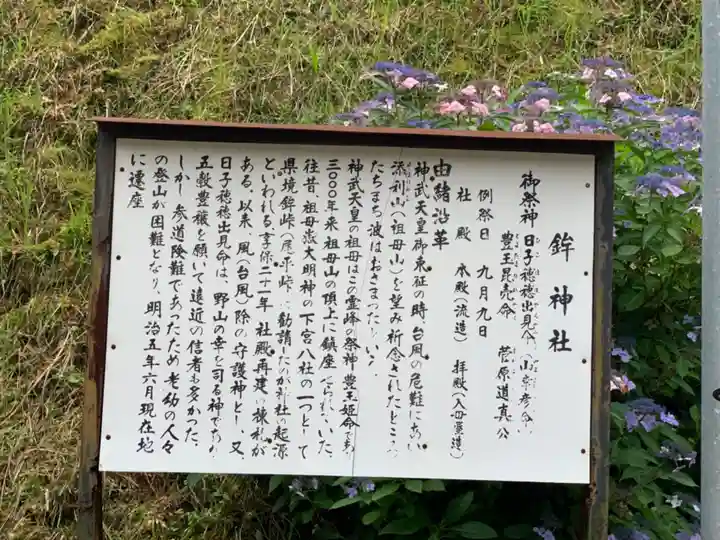 鉾神社
御祭神 日子穂穂出見命(山幸彦命)
豊玉昆売命 菅原道真公
例祭日 九月九日
社殿 本殿(流造) 拝殿(入母屋造)
由緒沿革
神武天皇御東征の時、台風の危難にあい
添利山(祖母山)を望み祈念されたところ
たちまち波はおさまったという。
神武天皇の祖母はこの霊峰の祭神 豊玉姫命であり
三〇〇〇年来 祖母山の頂上に鎮座 いた
往昔 祖母嶽大明神の下宮八社の一つとして
県境鉾峠(尾平峠)に勧請したのが神社の起源
といわれる。享保二十年 社殿再建の棟札が
ある。以来、風(台風)除の守護神とし、又、
日子穂穂出見命は、野山の幸を司る神であり
五穀豊穣を願いて遠近の信者も多かった。
しかし、参道険難であったため老幼の人々
の登山が困難となり、明治五年六月現在地
に遷座